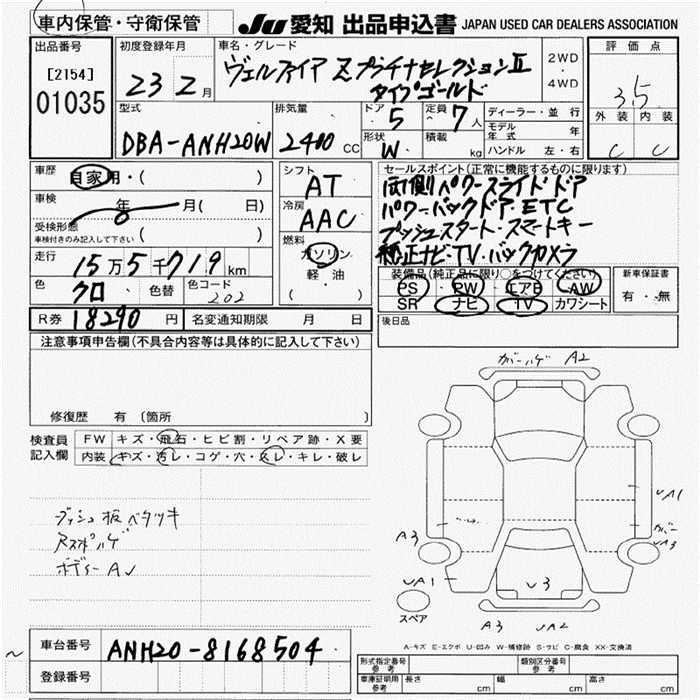 車内保管・守衛保管
JU 愛知 出品申込書 JAPAN USED CAR DEALERS ASSOCIATION
出品番号
[2154]
01035
初度登録年月
23 2月
車名・グレード
ヴェルファイア Zプラチナセレクション II
タイプゴールド
2WD
・
4WD
評価点
3.5
外装 内装
C C
型式
DBA-ANH20W
排気量
2400 CC
ドア
5
定員
7人
形状
W
積載
kg
ディーラー・並行
モデル年式 年
ハンドル 左・右
車歴
自家用・( )
車検
年 月( 日)
受検形態
車検付きのみ記入して下さい ( )
走行
15万5千719km
色
クロ
色替
色コード
202
シフト
AT
冷房
AAC
燃料
ガソリン
軽・油
( )
セールスポイント(正常に機能するものに限ります)
両側パワースライドドア
パワーバックドア・ETC
プッシュスタート・スマートキー
純正ナビ・TV・バックカメラ
装備品(純正品に限り○をつけてください)
PS PW エアB AW
SR ナビ TV カワシート
新車保証書
有・無
R券 18290円
名変通知期限 月 日
後日品
注意事項申告欄(不具合内容等は具体的に記入して下さい)
修復歴 有 〔箇所
検査員記入欄
FW キズ・飛石・ヒビ割・リペア跡・X要
内装 キズ・汚レ・コゲ・穴・スレ・キレ・破レ
ダッシュ板ベタツキ
ガーハゲ A2
UA1
A3
UA1
U3
スペア
A3 UA2
A-キズ E-エクボ U-凹み W-補修跡 S-サビ C-腐食 XX-交換済
車台番号
ANH20-8168504
登録番号
形式指定番号
参考
類別区分番号
参考
車庫証明用
参考
長さ cm
幅 cm
高さ cm